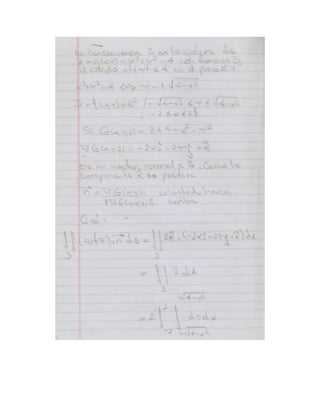 En consecuencia S es la gráfica de
z = g(x,y) = x² + y² - 4 con dominio D,
el círculo x² + y² ≤ 4 en el plano XY.
x² + y² = 4 <=> y = ±√4-x²
D = {(x,y) ∈ R² / -√4-x² ≤ y ≤ √4-x²
, -2 ≤ x ≤ 2}
Si G(x,y,z) = z + 4 - x² - y²
∇G(x,y,z) = -2xî - 2yĵ + k̂
es un vector normal a S. Como la
componente k̂ es positiva
n⃗ = ∇G(x,y,z) orientado hacia
‖∇G(x,y,z)‖ arriba
Así:
∬ (rot F)·n⃗ ds = ∬ 2k̂·(-2xî - 2yĵ + k̂) dA
S
= ∬ 2dA
√4-x²
= 2 ∫ ∫ dydx
-2 -√4-x²